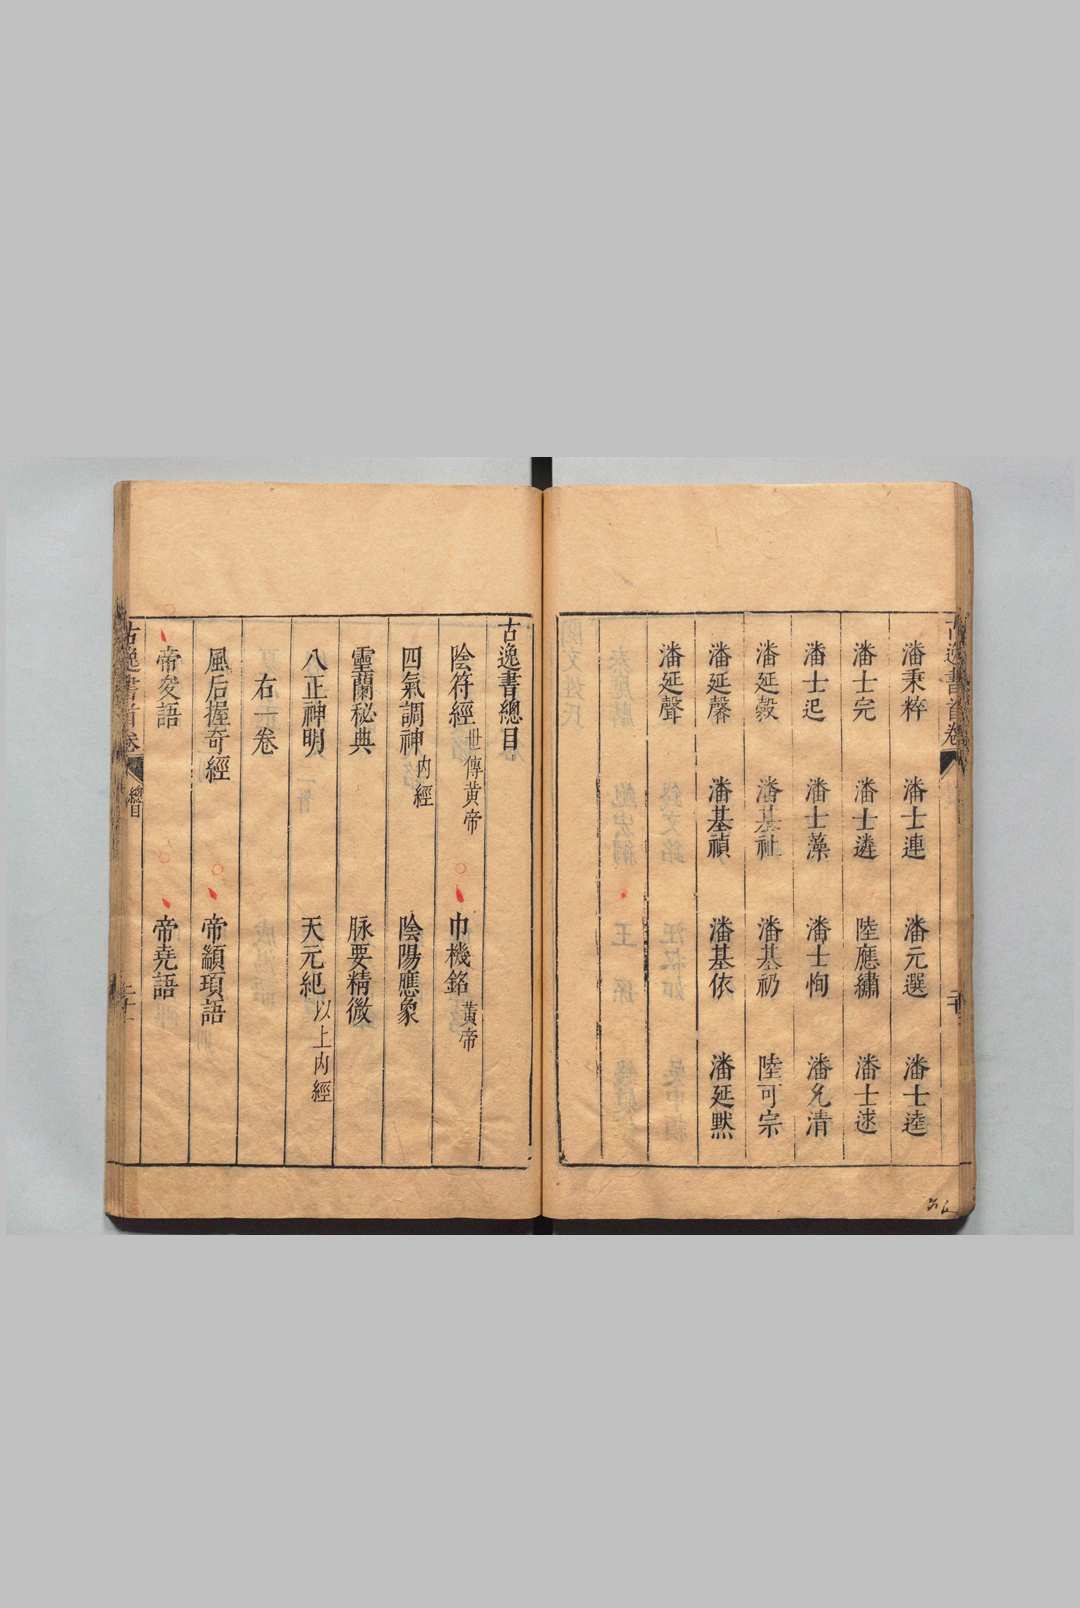 潘秉粹 潘士連 潘元選 潘士逵
潘士完 潘士遴 陸應繡 潘士逑
潘士藻 潘士恂 潘允清
潘延榖 潘基祉 潘基礽 陸可宗
潘延馨 潘基禎 潘基依 潘延黙
潘延聲
古逸書總目
陰符經 世傳黃帝 巾機銘 黃帝
四氣調神 内經 陰陽應象
靈蘭秘典 脉要精微
八正神明 天元紀 以上内經
右一卷
風后握奇經 帝顓頊語
帝嚳語 帝堯語
古逸書首卷 總目